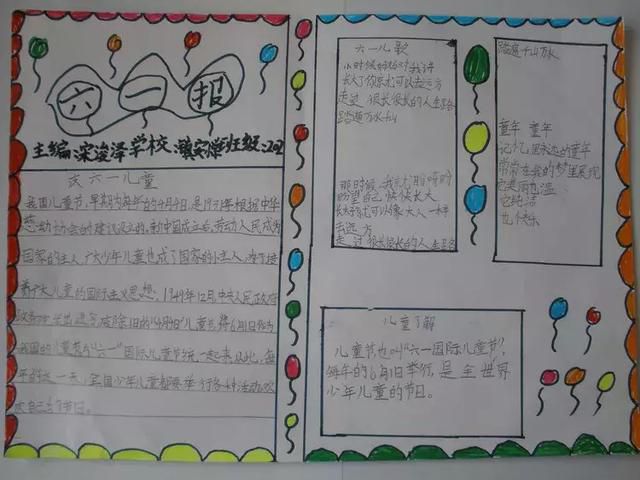 六一报
主编:宋浚泽 学校:镇实学班级:202
庆六一儿童
我国儿童节,早期为每年的4月4日,是1931年根据中华
慈幼协会的建议设立的,新中国成立后,劳动人民成为
国家的主人,广大少年儿童也成了国家的小主人,为了培
养广大儿童的国际主义思想,1949年12月,中央人民政府
废除旧的"4月4日"儿童节,将6月1日作为
我国的儿童节与"六一"国际儿童节统一起来,从此,每
年的这一天,全国少年儿童都要举行各种活动欢
庆自己的节日。
六一儿歌
小时候妈妈对我讲
长大了你就可以去远方
走过很长很长的人生路
踏遍万水千山
那时候我就
盼望自己快快长大
长大就可以像大人一样
去远方
走过很长很长的人生路
踏遍千山万水
童年 童年
记忆里永远的童年
常常在我的梦里展现
它是那么温
它纯洁
也快乐
儿童了解
儿童节也叫"六一国际儿童节",
每年的6月1日举行,是全世界
少年儿童的节日。